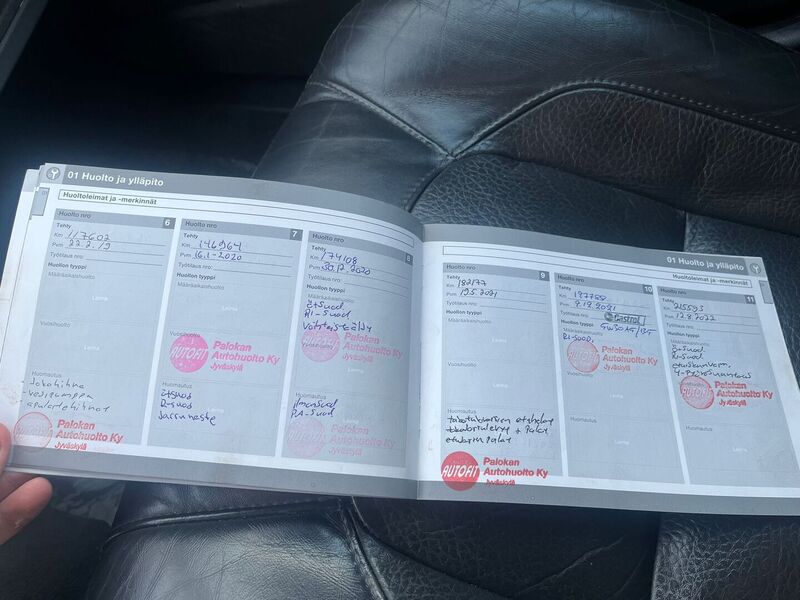 01 Huolto ja ylläpito
Huoltoleimat ja -merkinnät
Huolto nro 6
Tehty
Km 117602
Pvm 22.2.19
Työtilaus nro:
Huollon tyyppi
Määräaikaishuolto
Leima
Vuosihuolto
Huomautus
- Jakohihna
- vesipumppu
- apulaitehihnat
AUTOFIT
Palokan
Autohuolto Ky
Jyväskylä
Huolto nro 7
Tehty
Km 146964
Pvm 16.1-2020
Työtilaus nro:
Huollon tyyppi
Määräaikaishuolto
Leima
Vuosihuolto
AUTOFIT
Palokan
Autohuolto Ky
Jyväskylä
Huomautus
Ö+suod
R-suod
Jarruneste
Huolto nro 8
Tehty
Km 174108
Pvm 30.12.2020
Työtilaus nro:
Huollon tyyppi
Määräaikaishuolto
Ö+suod
RI-suod
Vuosihuolto
Palokan
Autohuolto Ky
Jyväskylä
Huomautus
ilmansuod
PA-suod
Palokan
Autohuolto Ky
Jyväskylä
01 Huolto ja ylläpito
Huoltoleimat ja -merkinnät
Huolto nro 9
Tehty
Km 182177
Pvm 19.5.2021
Työtilaus nro:
Huollon tyyppi
Määräaikaishuolto
Leima
Vuosihuolto
Leima
Huomautus
+ Palat
etujarrupalat
AUTOFIT
Palokan
Autohuolto Ky
Jyväskylä
Huolto nro 10
Tehty
Km
Pvm 9.12.2021
Työtilaus nro:
Castrol
Huollon tyyppi
Määräaikaishuolto
RI-suod.
Vuosihuolto
AUTOFIT
Palokan
Autohuolto Ky
Jyväskylä
Leima
Huomautus
Huolto nro 11
Tehty
Km 215593
Pvm 12.8.2022
Työtilaus nro:
Huollon tyyppi
Määräaikaishuolto
Ö-suod
RI-suod
4-Pyöräsuuntaus
Vuosihuolto
AUTOFIT
Palokan
Autohuolto Ky
Jyväskylä
Huomautus
Leima